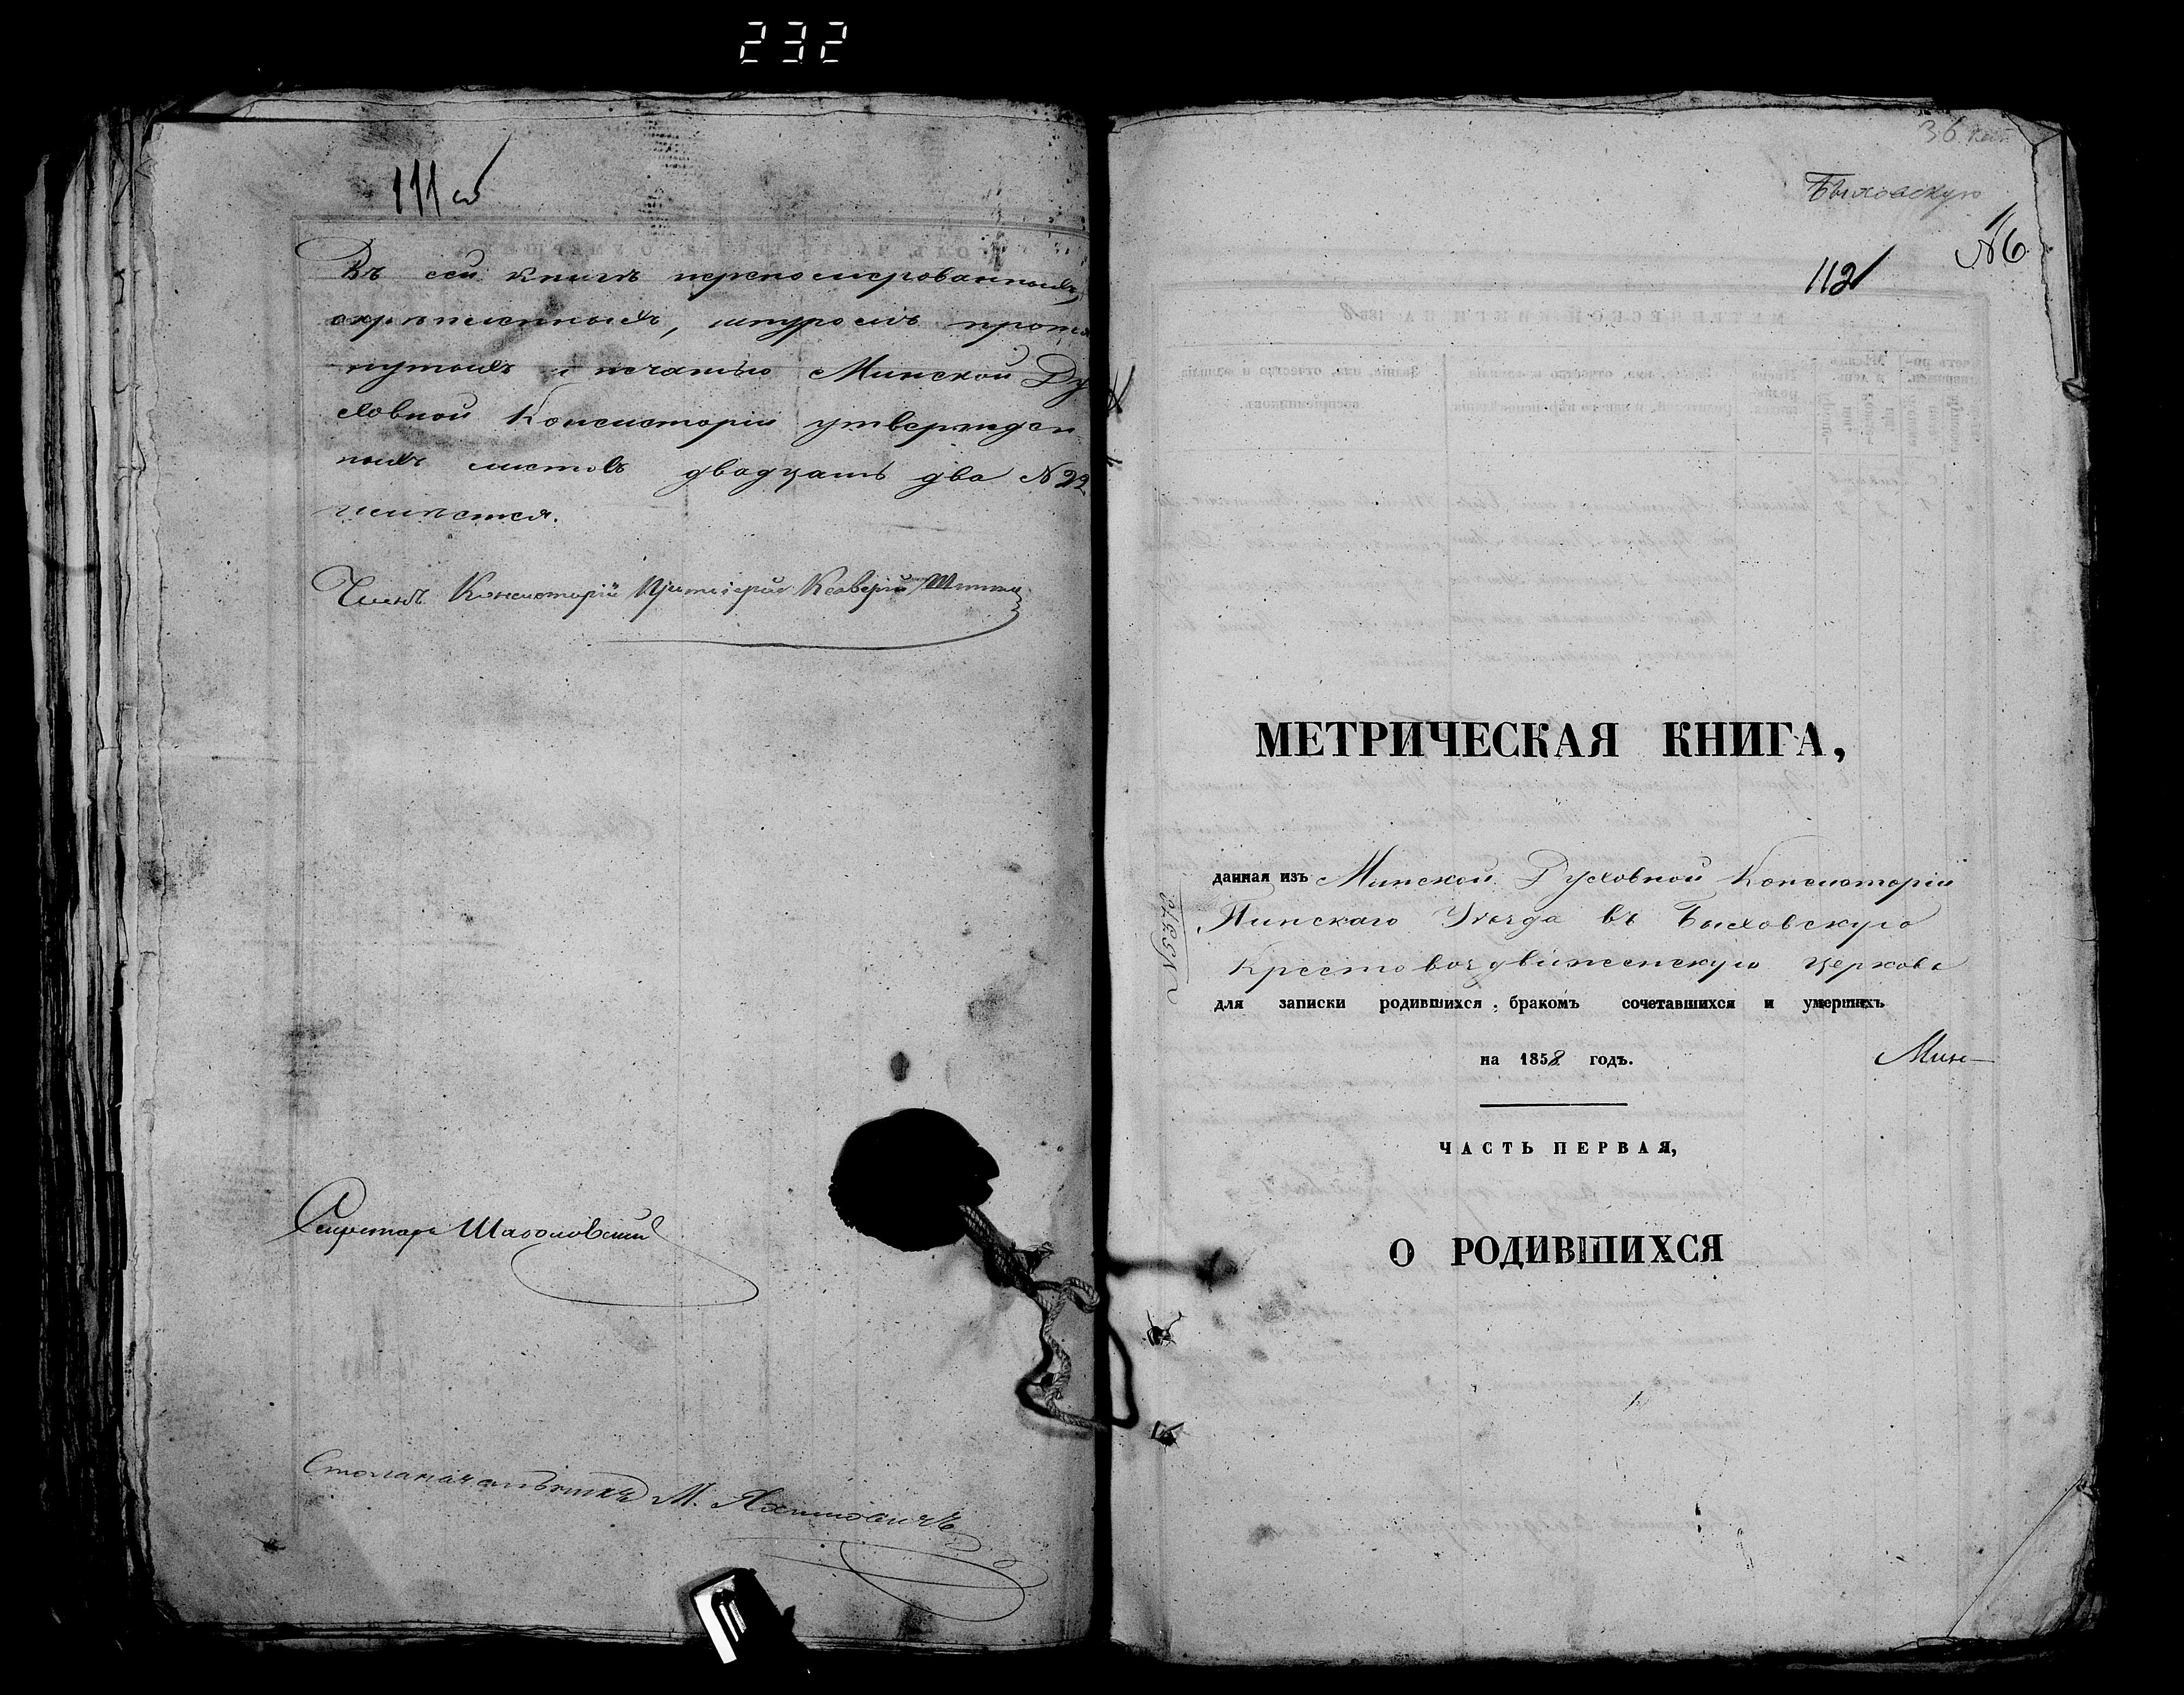 232
111 об
Въ сей книгѣ перенумерованныхъ,
скрѣпленныхъ, шнуромъ протя
нутыхъ и печатью Минской Ду
ховной Консисторіи утвержден
ныхъ листовъ двадцать два №22
числится.
Членъ Консисторіи
Секретарь
Столоначальникъ М.
36
Быховскую
№6
112
МЕТРИЧЕСКАЯ КНИГА,
данная изъ Минской Духовной Консисторіи
Пинскаго Уѣзда въ Быховскую
Крестовоздвиженскую церковь
для записки родившихся, бракомъ сочетавшихся и умершихъ
на 1858 годъ.
Мин—
ЧАСТЬ ПЕРВАЯ,
О РОДИВШИХСЯ